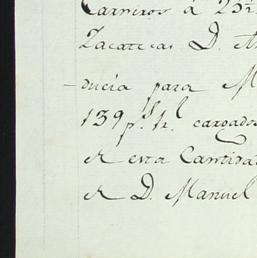 Carneros à 23 r.
Zacatecas D. An
ducia para M
139 p.s 1 r. cargados
de esta Cantidad
de D. Manuel